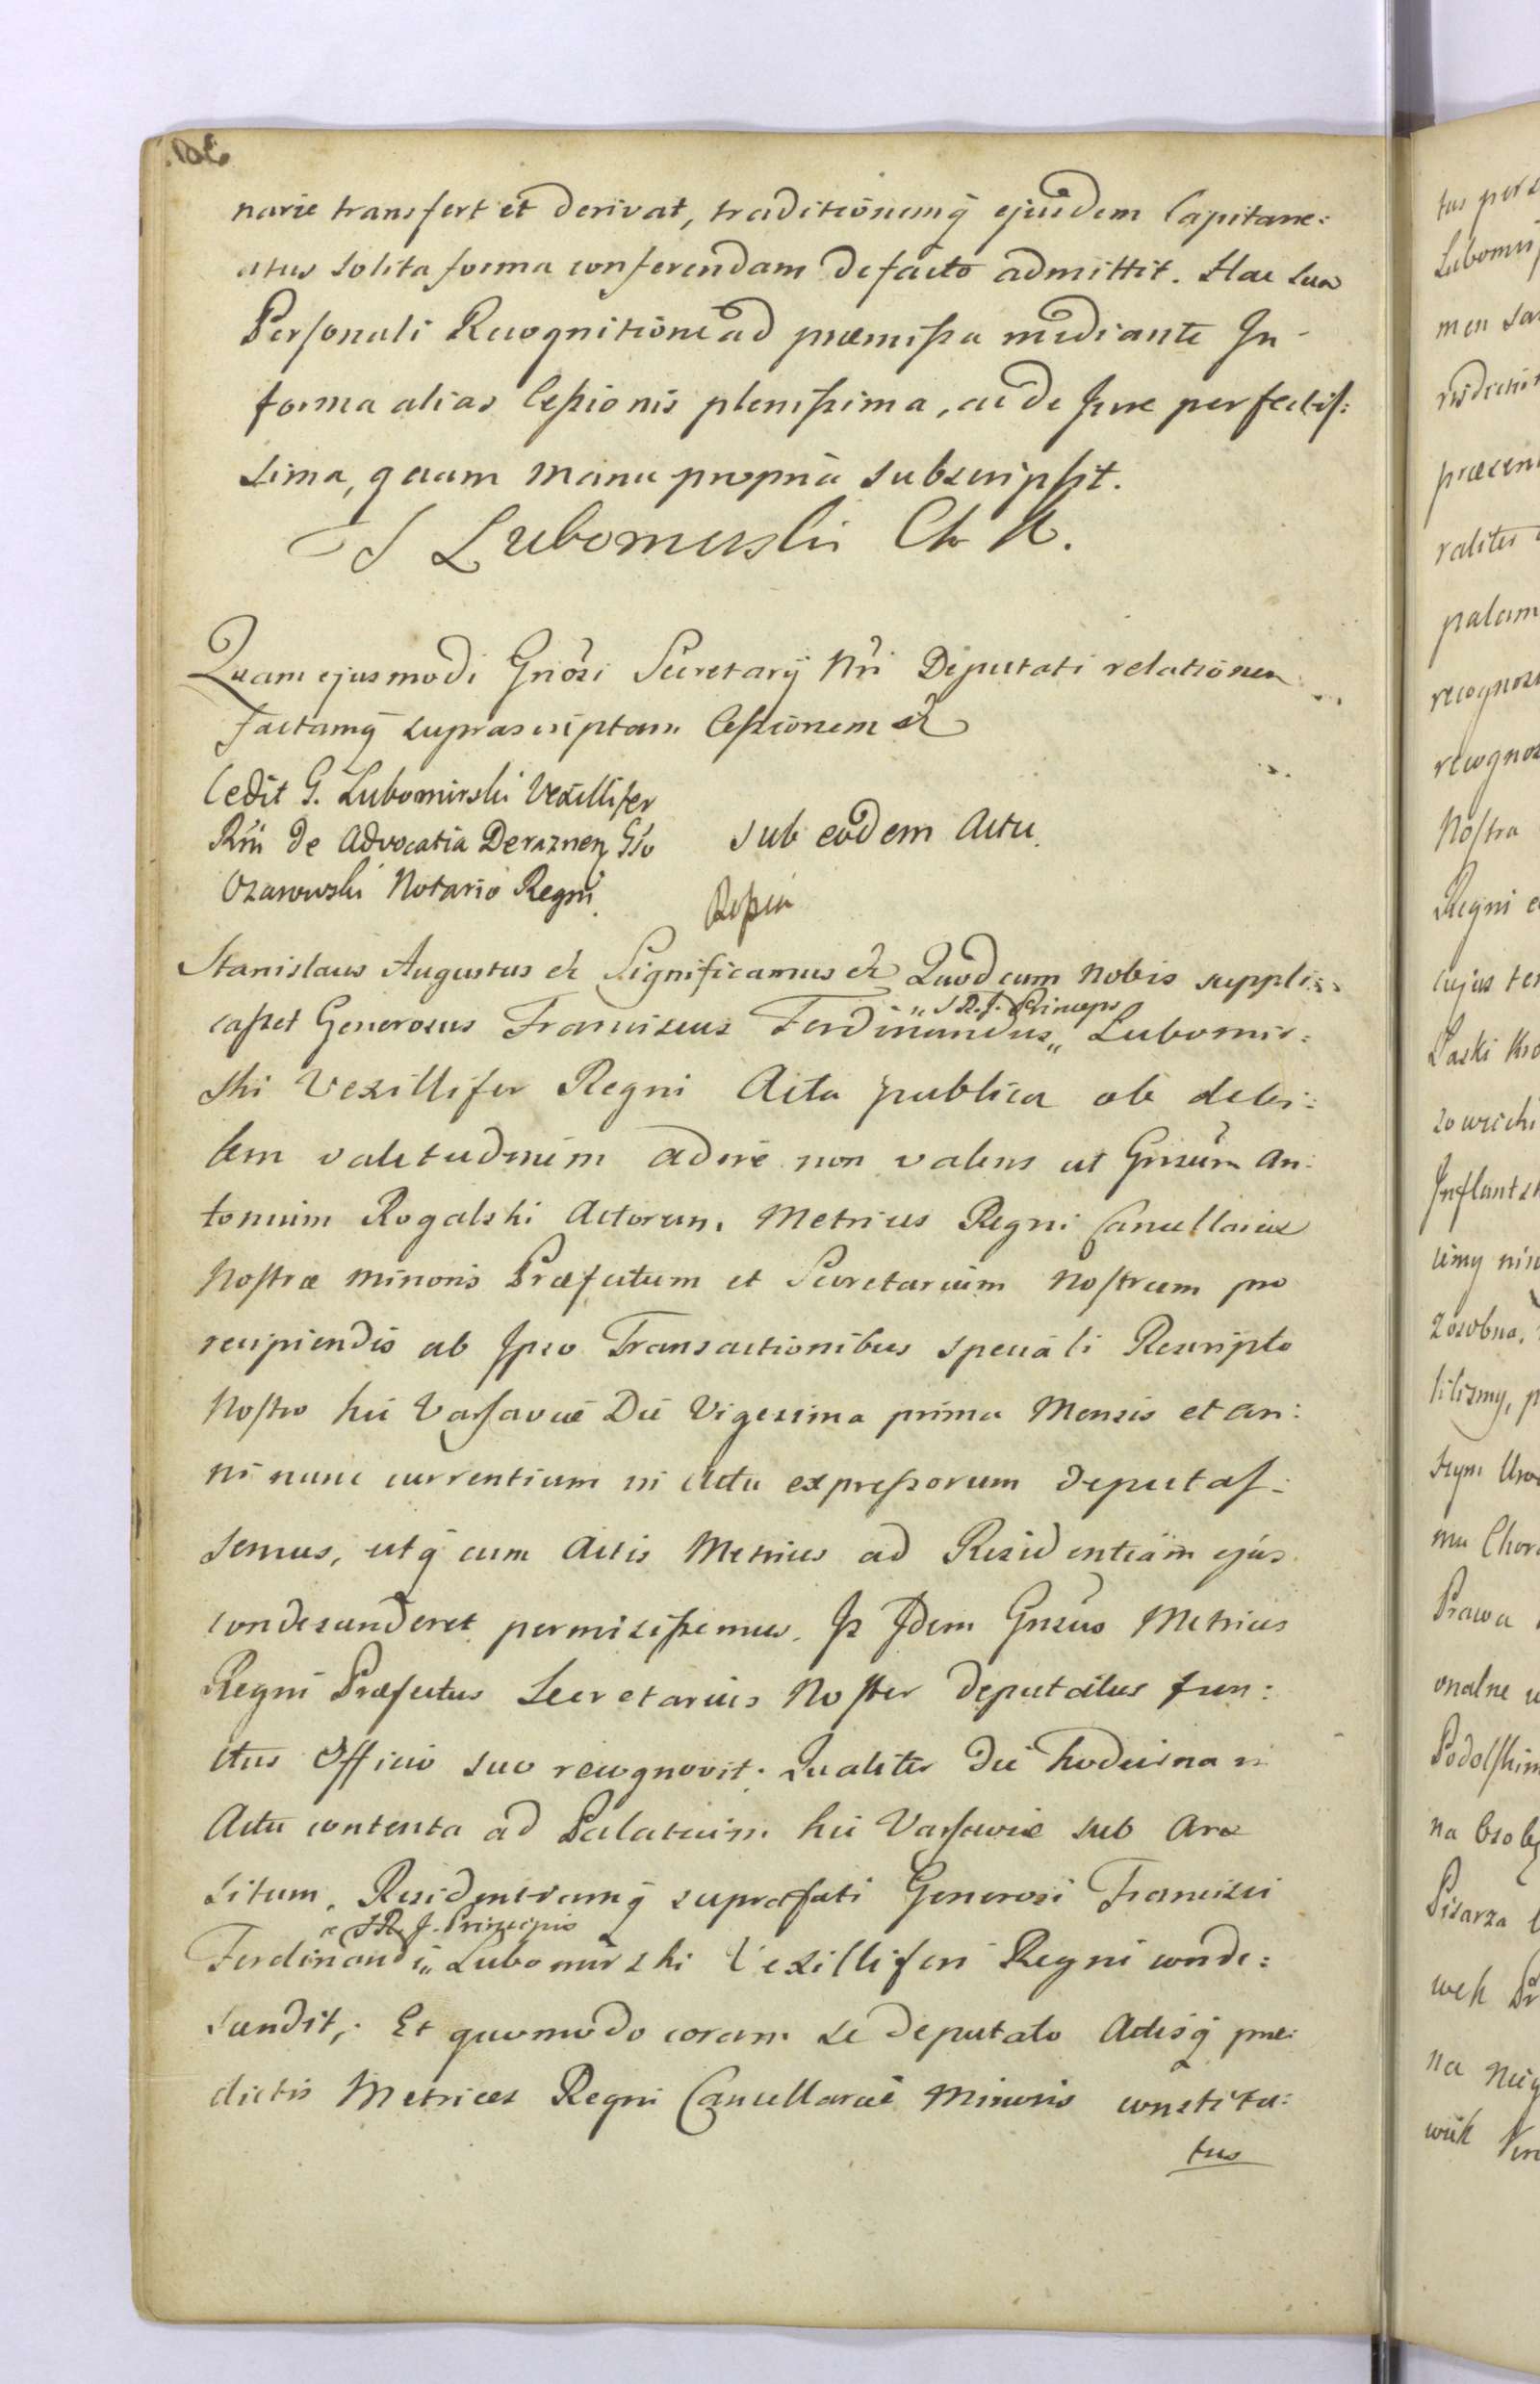 narie transfert et derivat, traditionemq̃ ejusdem Capitane:
atus solita forma conferendam defacto admittit. Hac sua
Personali Recognitione ad præmissa mediante In-
forma alias Cessionis plenissima, ac de Jure perfectis:
sima, quam manu propria subscripsit.
Lubomirski Ch K.
Quam ejusmodi Gnősi Secretarij Nri Deputati relationem
factamq̃ suprascriptam Cessionem &
Cedit G. Lubomirski Vexillifer
Rñi de Advocatia Deraznen Gso
Ozarowski Notario Regni.
sub eodem Actu.
Stanislaus Augustus & Significamus & Quod cum nobis suppli:
casset Generosus Franciscus Ferdinandus „ Lubomir:
„ S. R. J. Princeps
ski Vexillifer Regni Acta publica ob debi:
lem valetudinem adire non valens ut Gnsum An:
tonium Rogalski Actorum Metrices Regni Cancellariæ
Nostræ minoris Præfectum et Secretarium Nostrum pro
recipiendis ab Ipso Transactionibus speciali Rescripto
Nostro hic Varsaviæ Die Vigesima prima Mensis et an:
ni nunc currentium in Actu expressorum deputas:
semus, utq̃ cum Actis Metrices ad Residentiam ejus
condescenderet permisissemus. Is Idem Gnsus Metrices
Regni Præfectus Secretarius Noster deputatus fun:
ctus Officio suo recognovit. Qualiter Die hodierna in
Actu contenta ad Palatium hic Varsaviæ sub Arce
situm, Residentiamq̃ suprafati Generosi Francisci
„ S. R. J. Principis
Ferdinandi „ Lubomirski Vexilliferi Regni conde:
scendit, Et quomodo coram se deputato Actisq̃ præ:
dictis Metrices Regni Cancellariæ Minoris constitu:
tus